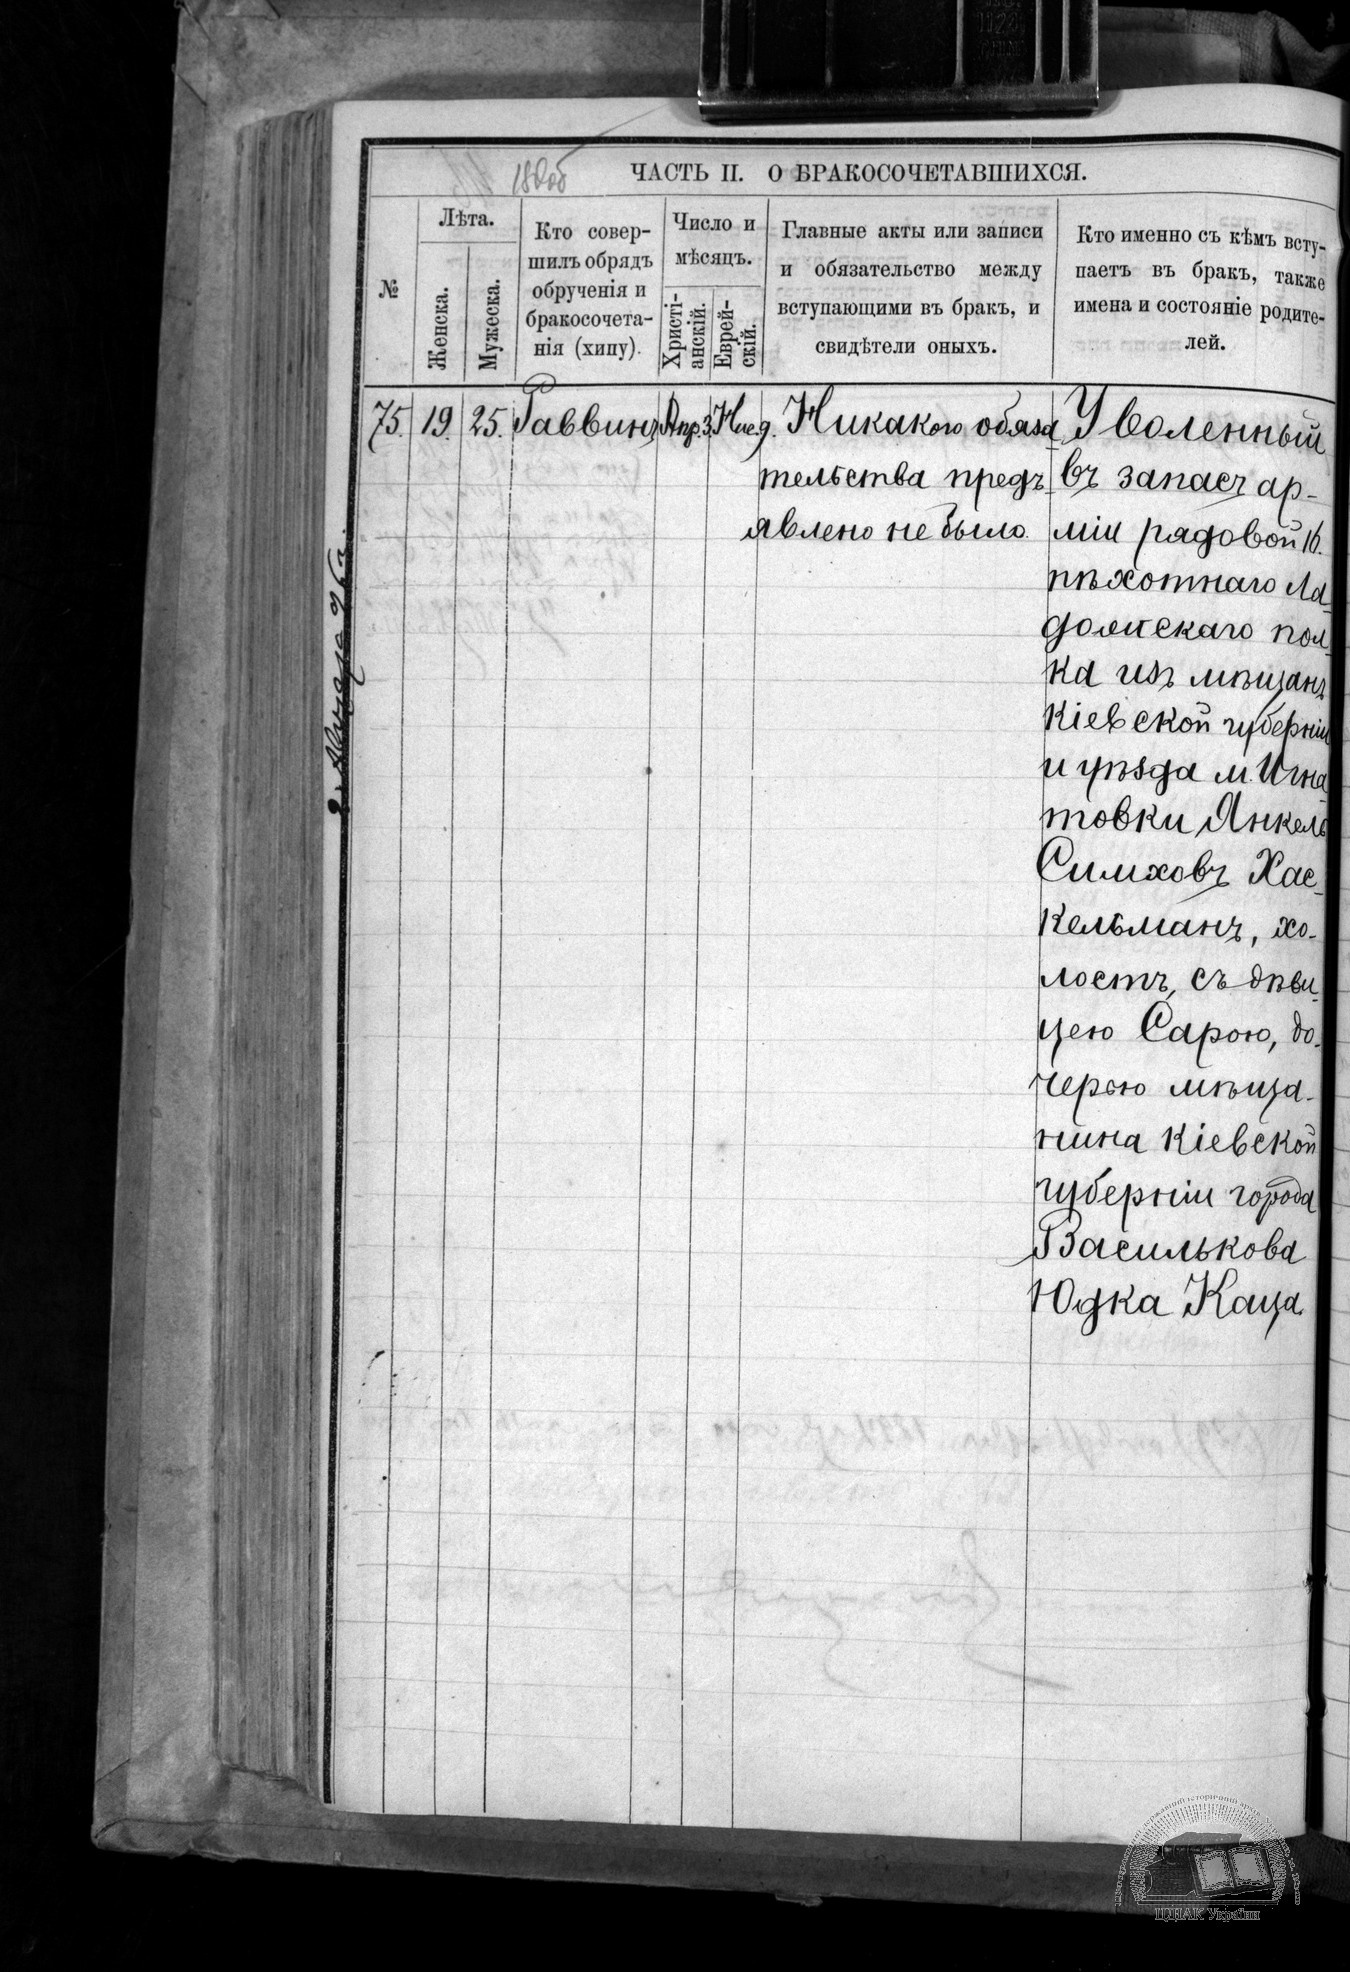 ЧАСТЬ II. О БРАКОСОЧЕТАВШИХСЯ.
№
Лѣта.
Женска.
Мужеска.
Кто совер-
шилъ обрядъ
обрученія и
бракосочета-
нія (хипу).
Число и
мѣсяцъ.
Христі-
анскій.
Еврей-
скій.
Главные акты или записи
и обязательство между
вступающими въ бракъ, и
свидѣтели оныхъ.
Кто именно съ кѣмъ всту-
паетъ въ бракъ, также
имена и состояніе родите-
лей.
75.
19.
25.
Раввинъ
Апр. 3.
Нис. 9.
Никакого обяза-
тельства предъ-
явлено не было.
Уволенный
въ запасъ ар-
міи рядовой 16.
пѣхотнаго Ла-
дожскаго пол-
ка изъ мѣщанъ
Кіевской губерніи
и уѣзда м. Игна-
товки Янкель
Симховъ Хас-
кельманъ, хо-
лостъ, съ дѣви-
цею Сарою, до-
черью мѣща-
нина Кіевской
губерніи города
Василькова
Юдка Каца.
ЦДІАК України